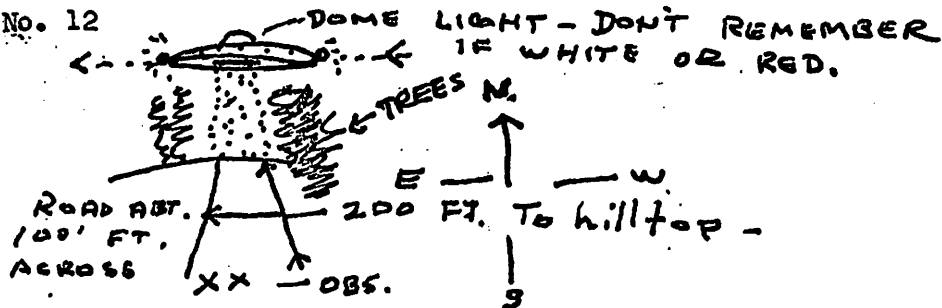 No. 12
DOME LIGHT - DON'T REMEMBER
IF WHITE OR RED.
TREES
N.
E
W.
ROAD ABT.
100' FT.
ACROSS
200 FT. To hilltop -
XX - OBS.
S